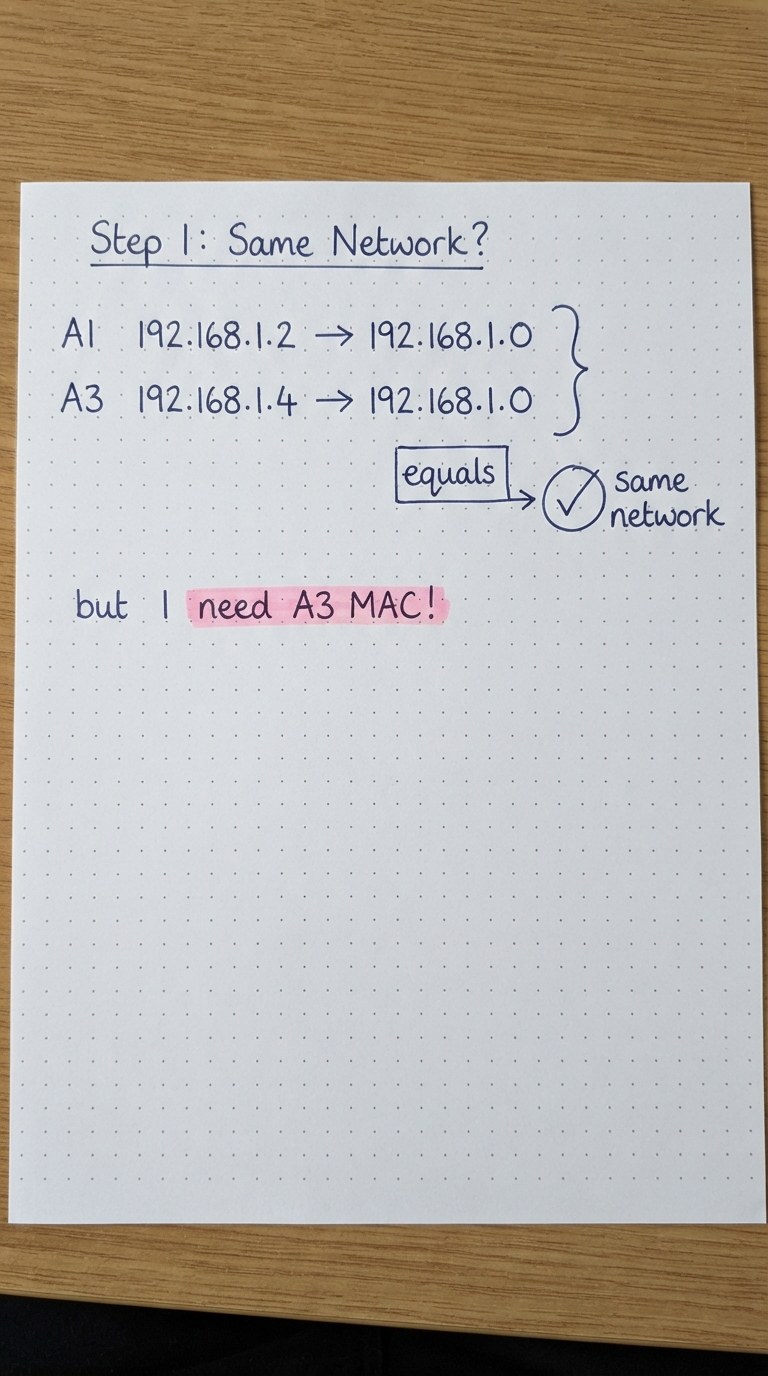 Step 1: Same Network?
A1 192.168.1.2 → 192.168.1.0
A3 192.168.1.4 → 192.168.1.0
equals → ✓ same
network
but I need A3 MAC!